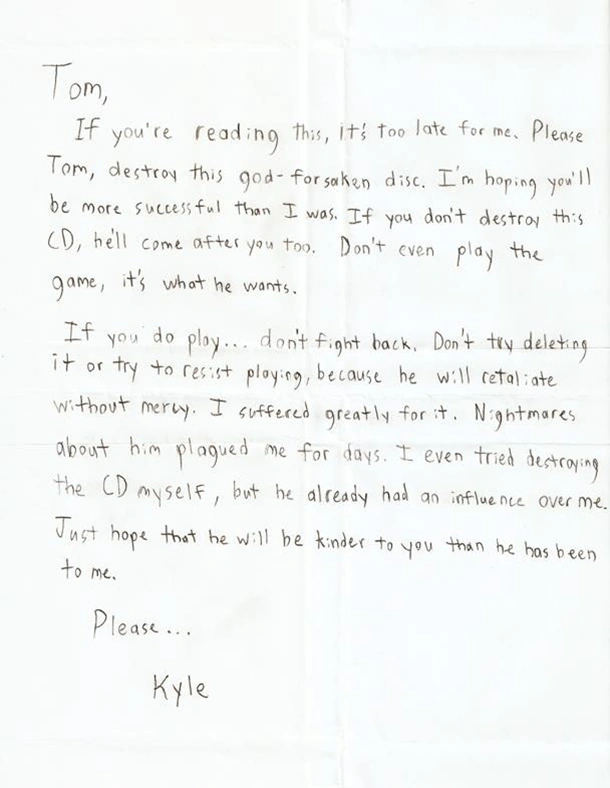 Tom,
If you're reading this, it's too late for me. Please
Tom, destroy this god-forsaken disc. I'm hoping you'll
be more successful than I was. If you don't destroy this
CD, he'll come after you too. Don't even play the
game, it's what he wants.
If you do play... don't fight back. Don't try deleting
it or try to resist playing, because he will retaliate
without mercy. I suffered greatly for it. Nightmares
about him plagued me for days. I even tried destroying
the CD myself, but he already had an influence over me.
Just hope that he will be kinder to you than he has been
to me.
Please...
Kyle